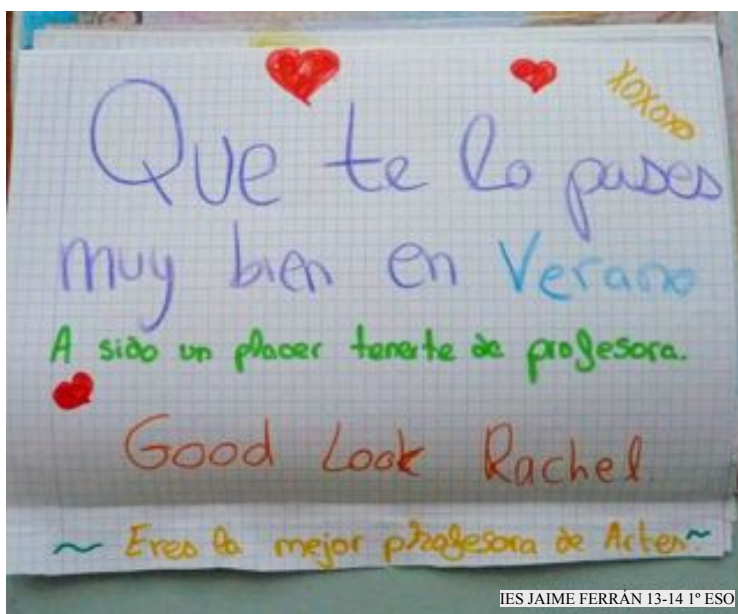 XOXOXO
Que te lo pases
muy bien en Verano
A sido un placer tenerte de profesora.
Good Look Rachel.
~ Eres la mejor profesora de Artes ~
IES JAIME FERRÁN 13-14 1º ESO